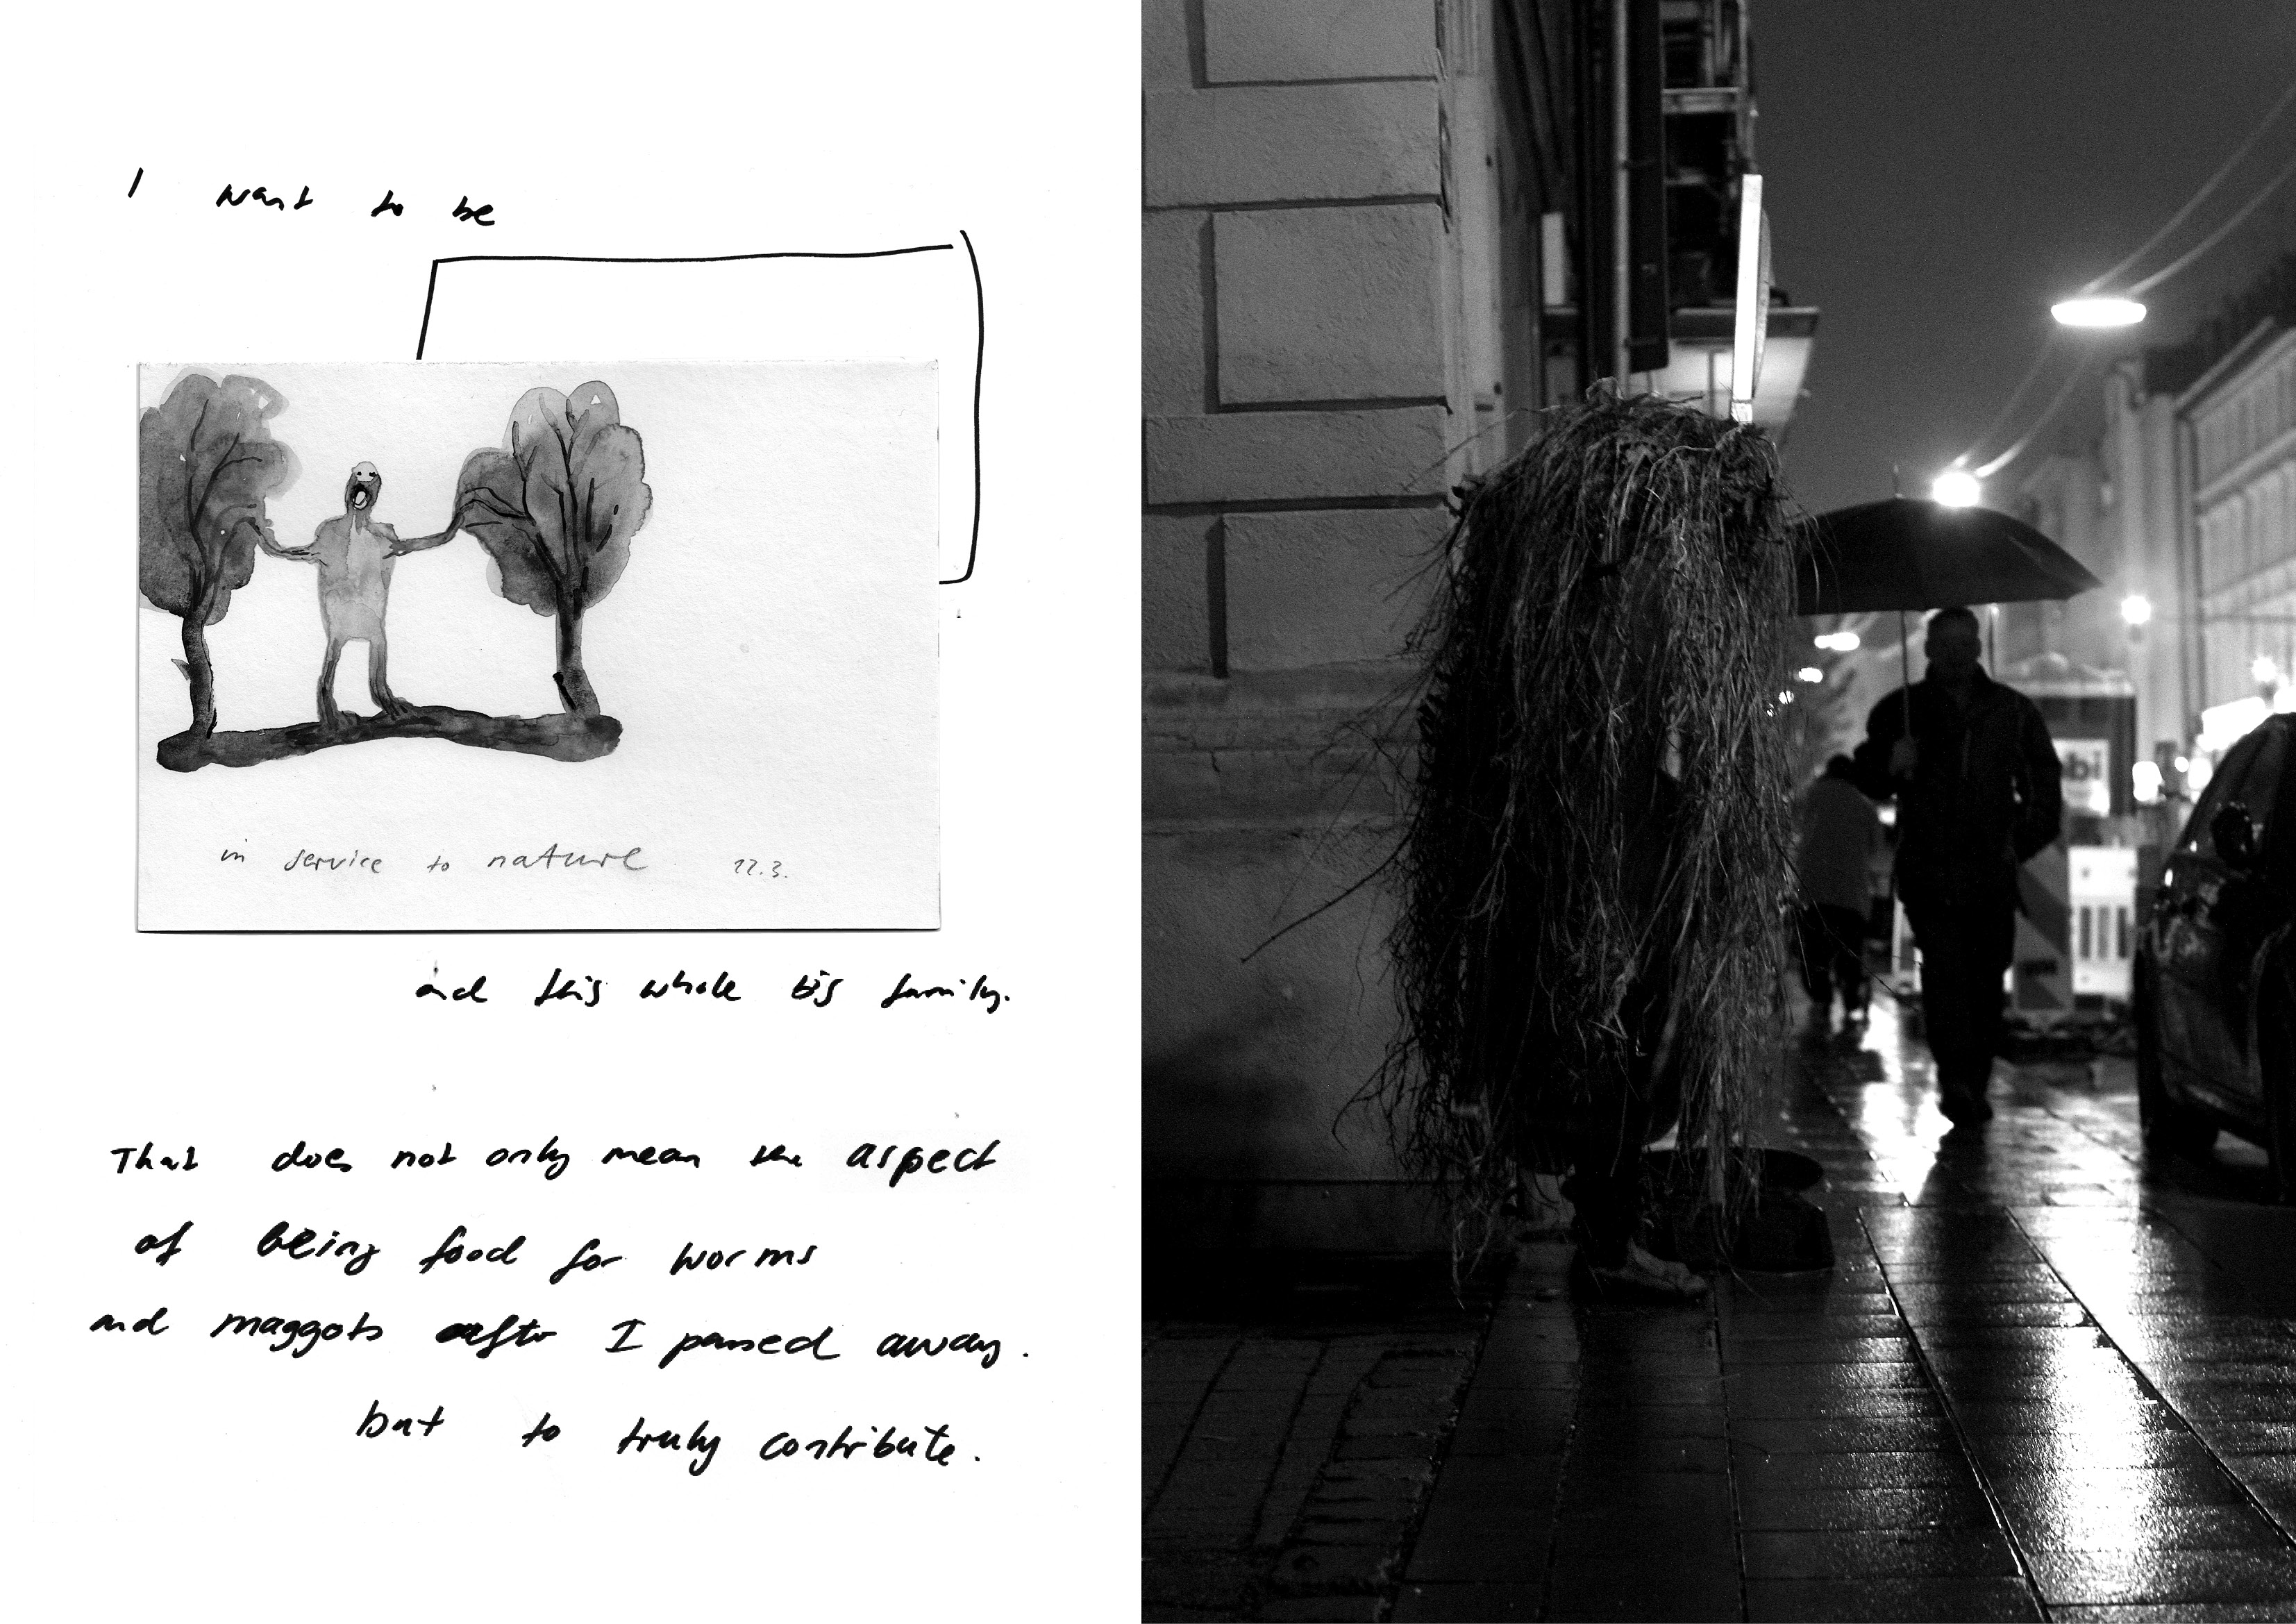 I want to be
in service to nature 22.3.
and this whole big family.
That does not only mean the aspect
of being food for worms
and maggots after I passed away.
but to truly contribute.
bi